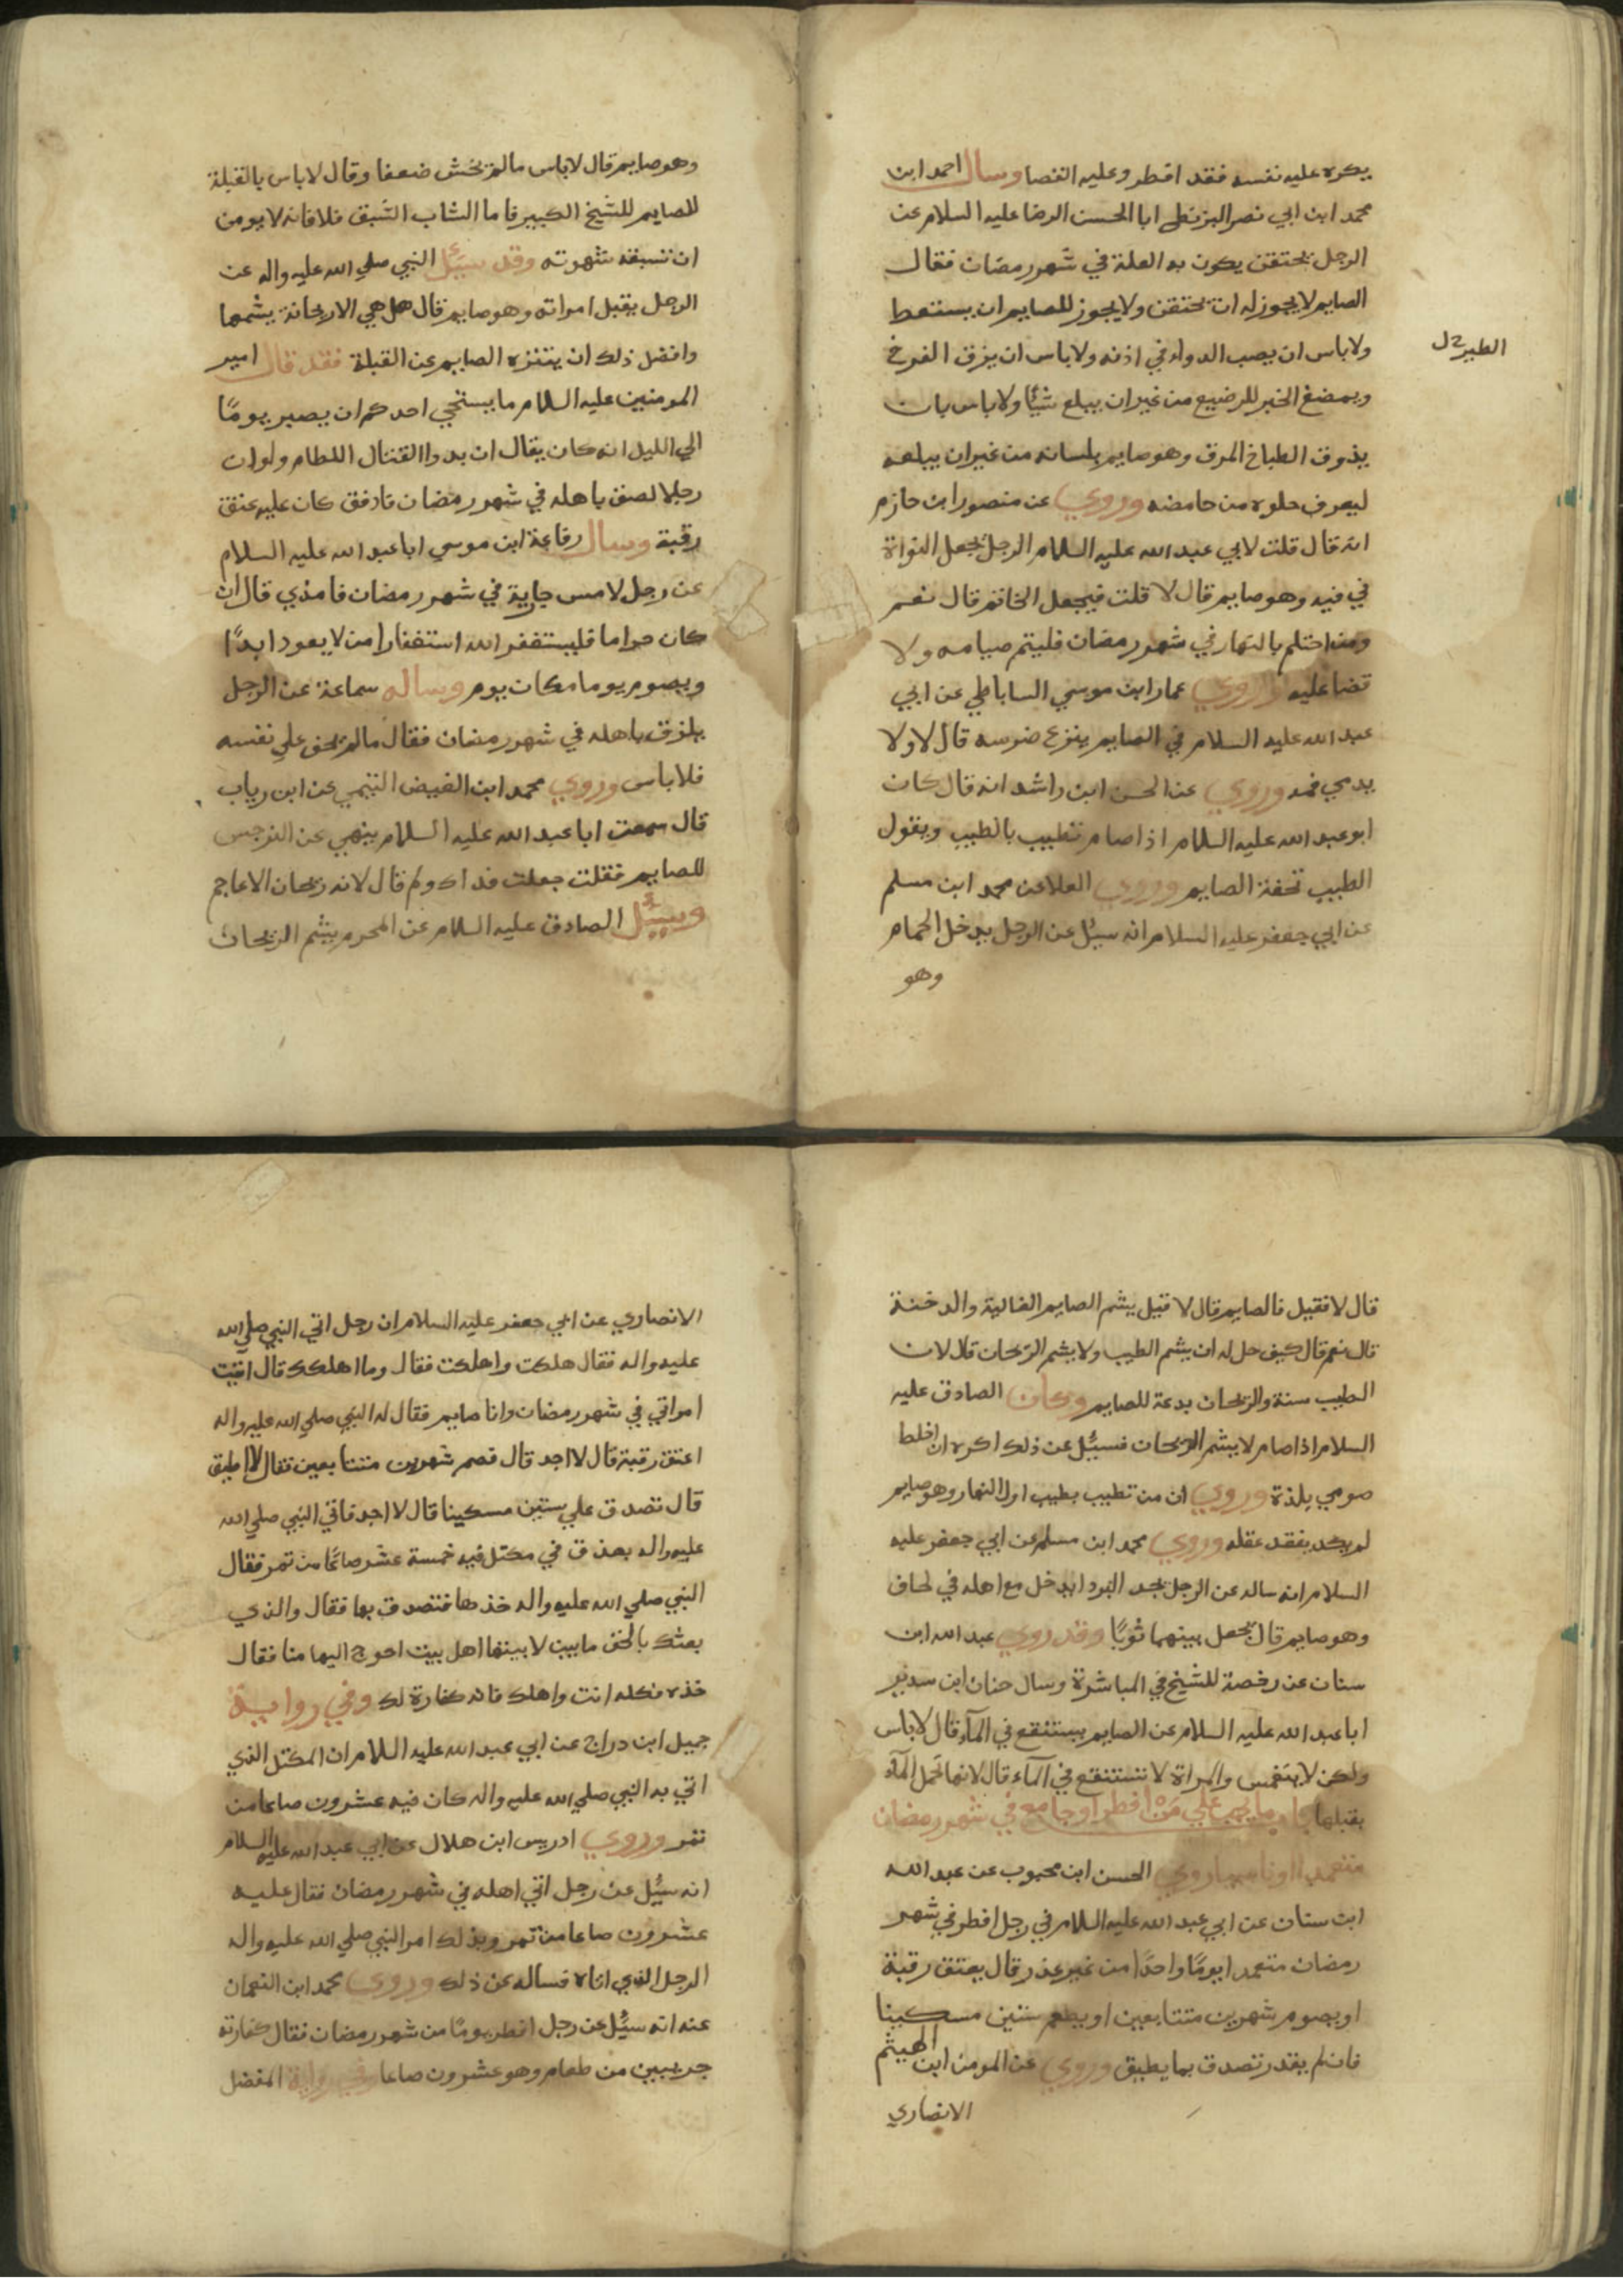 يكره عليه نفسه فقد افطر وعليه القضا وسال احمد ابن
محمد ابن ابي نصر البزنطي ابا الحسن الرضا عليه السلام عن
الرجل يحتقن يكون به العلة في شهر رمضان فقال
الصايم لا يجوز له ان يحتقن ولا يجوز للصايم ان يستعط
ولا باس ان يصب الدواء في اذنه ولا باس ان يزق الفرخ
الطير
ويمضغ الخبز للرضيع من غير ان يبلع شيًا ولا باس بان
يذوق الطباخ المرق وهو صايم بلسانه من غير ان يبلعه
ليعرف حلوه من حامضه وروي عن منصور ابن حازم
انه قال قلت لابي عبد الله عليه السلام الرجل يجعل النواة
في فيه وهو صايم قال لا قلت فيجعل الخاتم قال نعم
ومن احتلم بالنهار في شهر رمضان فليتم صيامه ولا
قضا عليه وروي عمار ابن موسي الساباطي عن ابي
عبد الله عليه السلام في الصايم ينزع ضرسه قال لا ولا
يدمي فمه وروي عن الحسن ابن راشد انه قال كان
ابو عبد الله عليه السلام اذا صام تطيب بالطيب ويقول
الطيب تحفة الصايم وروي العلا عن محمد ابن مسلم
عن ابي جعفر عليه السلام انه سئل عن الرجل يدخل الحمام
وهو
وهو صايم قال لا باس مالم يخش ضعفا وقال لا باس بالقبلة
للصايم للشيخ الكبير فاما الشاب الشبق فلا فانه لا يومن
ان تسبقه شهوته وقد سئل النبي صلي الله عليه واله عن
الرجل يقبل امراته وهو صايم قال هل هي الا ريحانة يشمها
وافضل ذلك ان يتنزه الصايم عن القبلة فقد قال امير
المومنين عليه السلام ما يستحي احدكم ان يصبر يومًا
الي الليل انه كان يقال ان بدوا القتال اللطام ولو ان
رجلا لصق باهله في شهر رمضان فادفق كان عليه عتق
رقبة وسال رفاعة ابن موسي ابا عبد الله عليه السلام
عن رجل لامس جارية في شهر رمضان فامذي قال ان
كان حراما فليستغفر الله استغفارا من لا يعود ابدًا
ويصوم يوما مكان يوم وساله سماعة عن الرجل
يلزق باهله في شهر رمضان فقال مالم يخف علي نفسه
فلا باس وروي محمد ابن الفيض التيمي عن ابن رياب
قال سمعت ابا عبد الله عليه السلام ينهي عن النرجس
للصايم فقلت جعلت فداك ولم قال لانه ريحان الاعاجم
وسئل الصادق عليه السلام عن المحرم يشم الريحان
قال لا فقيل فالصايم قال لا قيل يشم الصايم الغالية والدخنة
قال نعم قال كيف حل له ان يشم الطيب ولا يشم الريحان قال لان
الطيب سنة والريحان بدعة للصايم وكان الصادق عليه
السلام اذا صام لا يشم الريحان فسئل عن ذلك اكره ان اخلط
صومي بلذة وروي ان من تطيب بطيب اول النهار وهو صايم
لم يكد يفقد عقله وروي محمد ابن مسلم عن ابي جعفر عليه
السلام انه ساله عن الرجل يجد البرد ايدخل مع اهله في لحاف
وهو صايم قال يجعل بينهما ثوبًا وقد روي عبد الله ابن
سنان عن رخصة للشيخ في المباشرة وسال حنان ابن سدير
ابا عبد الله عليه السلام عن الصايم يستنقع في المآء قال لا باس
ولكن لا يتغمس والمراة لا تستنقع في المآء قال لانها تحمل المآء
بقبلها باب ما يجب علي من افطر او جامع في شهر رمضان
متعمدا او ناسيا روي الحسن ابن محبوب عن عبد الله
ابن سنان عن ابي عبد الله عليه السلام في رجل افطر في شهر
رمضان متعمدا يومًا واحدًا من غير عذر قال يعتق رقبة
او يصوم شهرين متتابعين او يطعم ستين مسكينا
فان لم يقدر تصدق بما يطيق وروي عن المومن ابن الهيثم
الانصاري
الانصاري عن ابي جعفر عليه السلام ان رجل اتي النبي صلي الله
عليه واله فقال هلكت واهلكت فقال وما اهلكك قال اتيت
امراتي في شهر رمضان وانا صايم فقال له النبي صلي الله عليه واله
اعتق رقبة قال لا اجد قال فصم شهرين متتابعين فقال لا اطيق
قال تصدق علي ستين مسكينا قال لا اجد فاتي النبي صلي الله
عليه واله بعذق في مكتل فيه خمسة عشر صاعًا من تمر فقال
النبي صلي الله عليه واله خذها فتصدق بها فقال والذي
بعثك بالحق ما بين لابيتها اهل بيت احوج اليها منا فقال
خذه فكله انت واهلك فانه كفارة لك وفي رواية
جميل ابن دراج عن ابي عبد الله عليه السلام ان المكتل الذي
اتي به النبي صلي الله عليه واله كان فيه عشرون صاعا من
تمر وروي ادريس ابن هلال عن ابي عبد الله عليه السلام
انه سئل عن رجل اتي اهله في شهر رمضان فقال عليه
عشرون صاعا من تمر وبذلك امر النبي صلي الله عليه واله
الرجل الذي اتاه فساله عن ذلك وروي محمد ابن النعمان
عنه انه سئل عن رجل افطر يومًا من شهر رمضان فقال كفارته
جريبين من طعام وهو عشرون صاعا وفي رواية المفضل